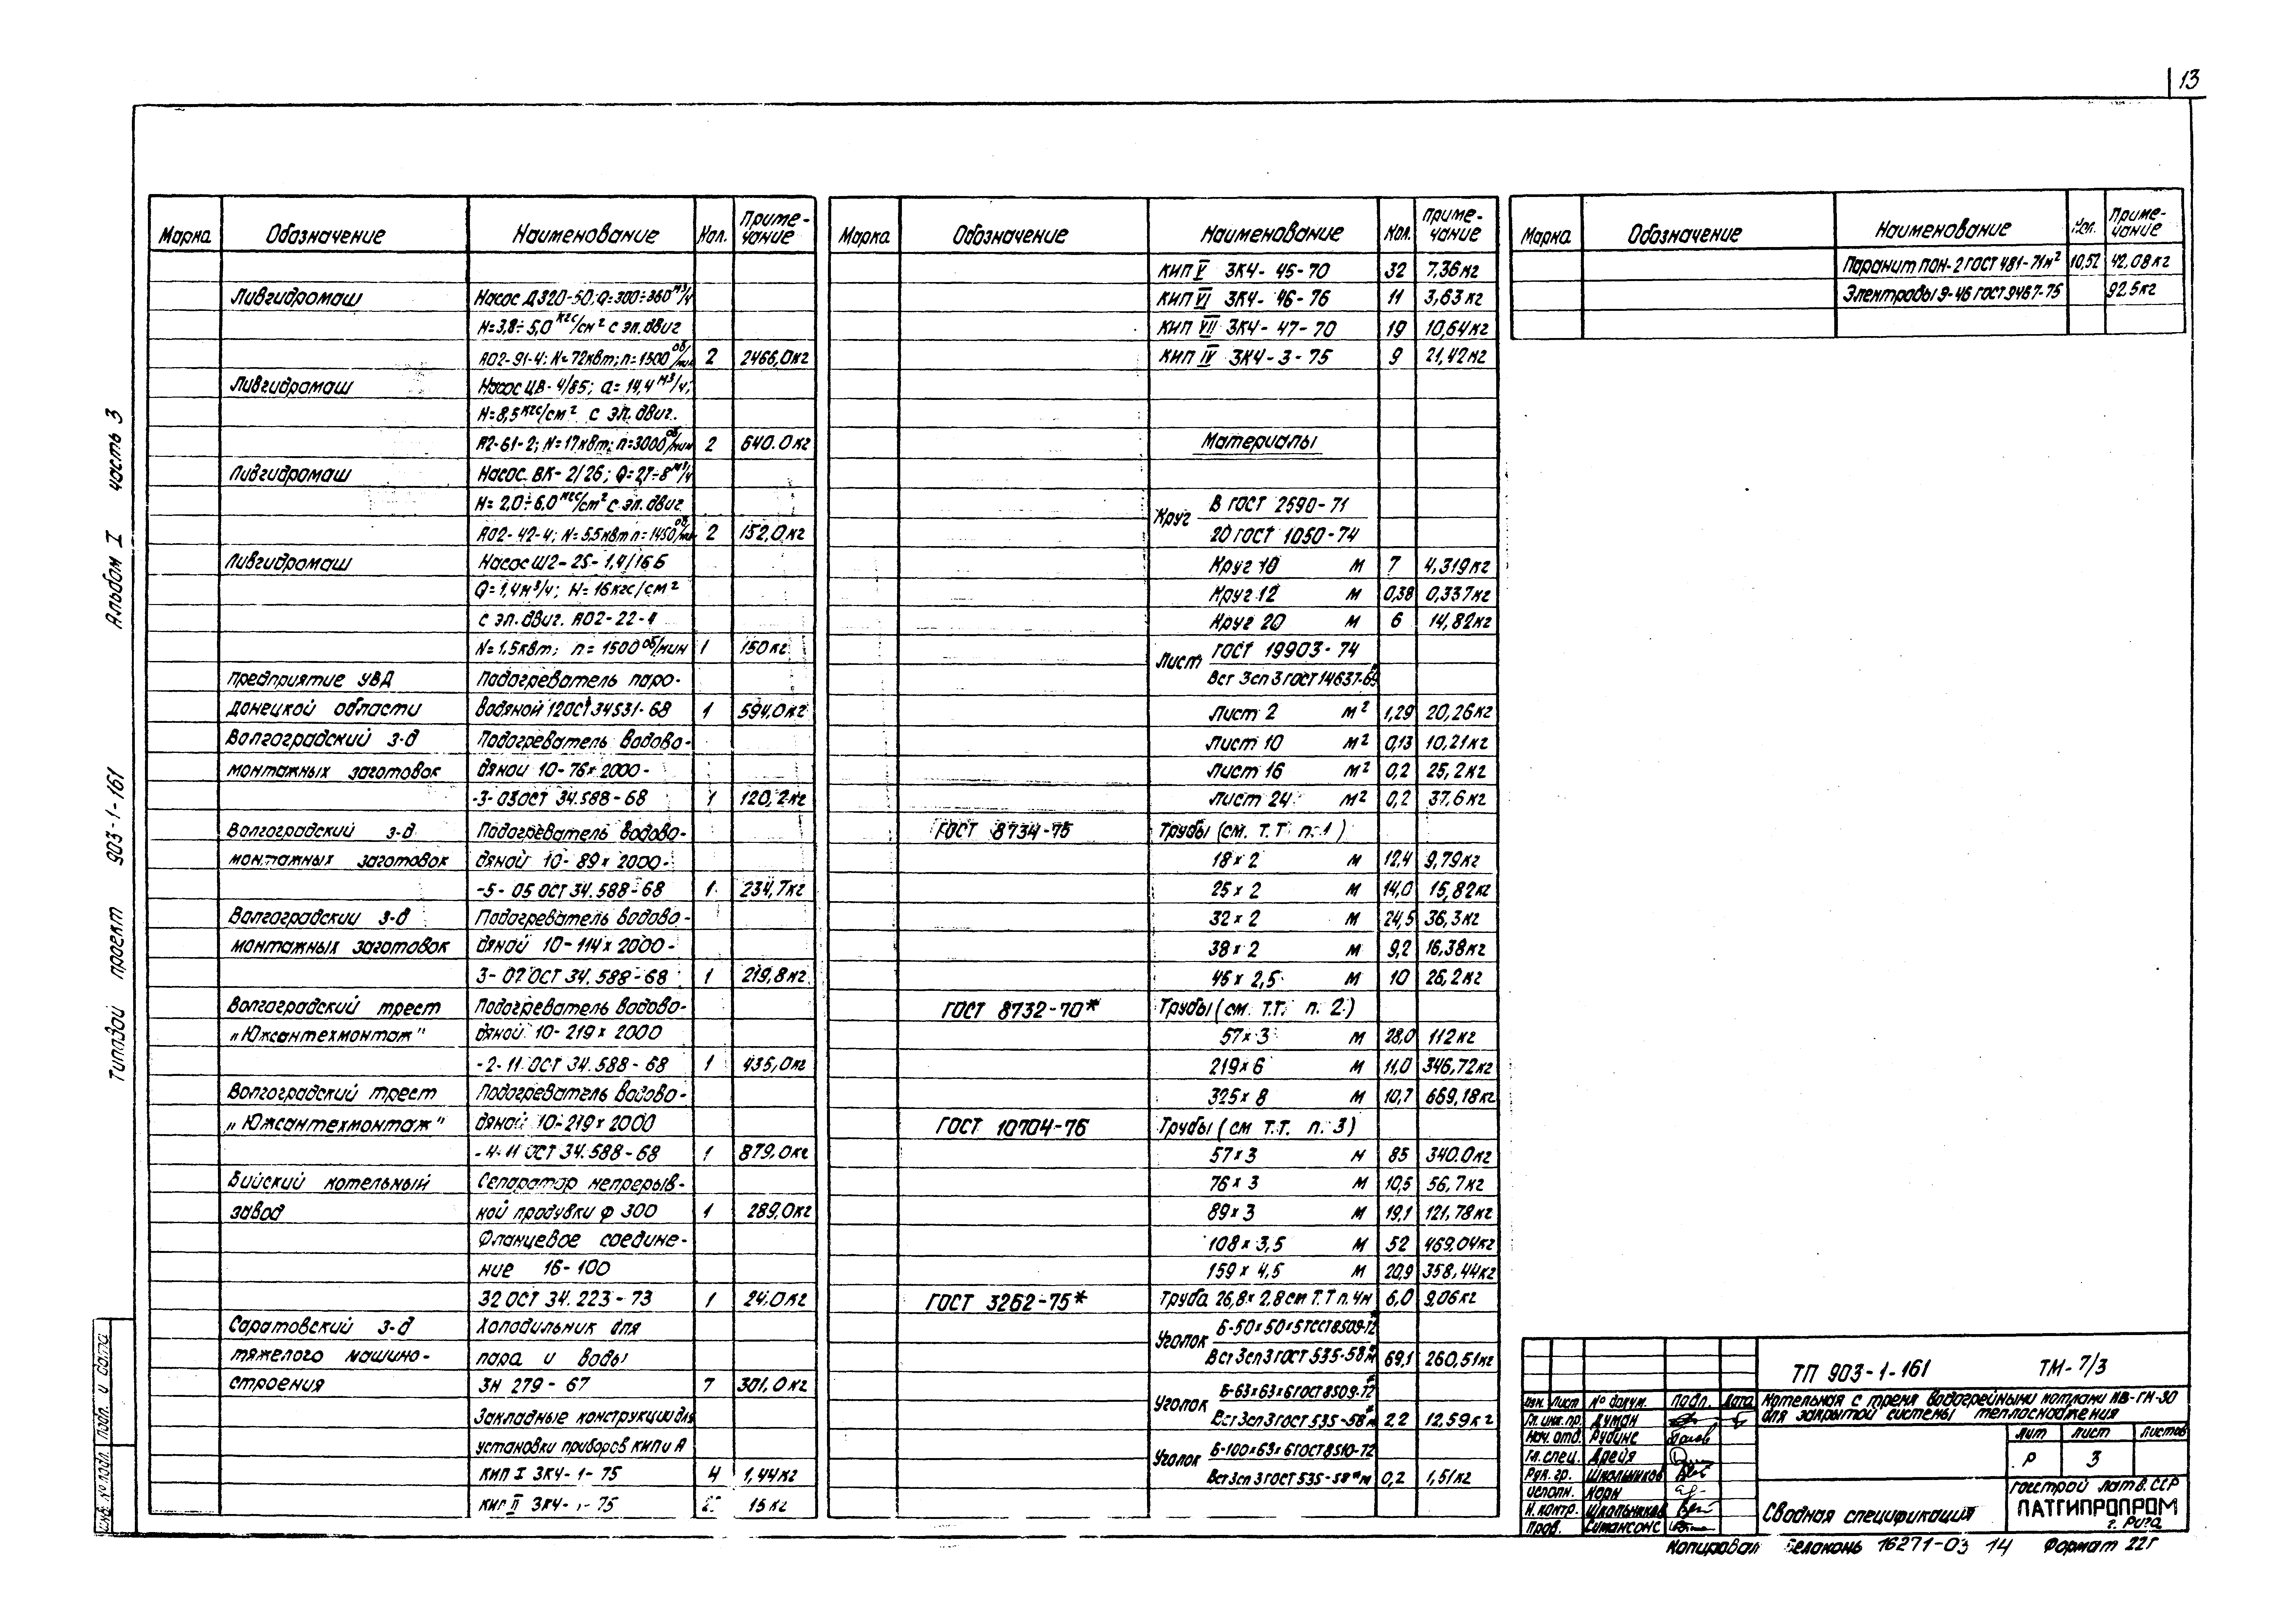 13
Марка Обозначение Наименование Кол. Приме-
чание
Ливгидромаш Насос Д320-50; Q=300÷360 м³/ч
H=3,8÷5,0 кгс/см² с эл. двиг
АО2-91-4; N=72квт; n=1500 об/мин 2 2466,0кг
Ливгидромаш Насос ЦВ-4/85; Q=14,4 м³/ч;
H=8,5 кгс/см² с эл. двиг.
А2-61-2; N=17квт; n=3000 об/мин 2 640.0кг
Ливгидромаш Насос ВК-2/26; Q=2,7÷8 м³/ч
H=2,0÷6,0 кгс/см² с эл. двиг.
АО2-42-4; N=5,5квт n=1450 об/мин 2 152,0кг
Ливгидромаш Насос Ш2-25-1,4/16Б
Q=1,4м³/ч; H=16кгс/см²
с эл. двиг. АО2-22-4
N=1,5квт; n=1500 об/мин 1 150кг
предприятие УВД Подогреватель паро-
донецкой области водяной 12ОСТ34531-68 1 594.0кг
Волгоградский з-д Подогреватель водово-
монтажных заготовок дяной 10-76×2000-
-3-03ОСТ 34.588-68 1 120,2кг
Волгоградский з-д Подогреватель водово-
монтажных заготовок дяной 10-89×2000-
-5-05 ОСТ 34.588-68 1 234,7кг
Волгоградский з-д Подогреватель водово-
монтажных заготовок дяной 10-114×2000-
3-07 ОСТ 34.588-68 1 219,8кг
Волгоградский трест Подогреватель водово-
„Южсантехмонтаж" дяной 10-219×2000
-2-11 ОСТ 34.588-68 1 435,0кг
Волгоградский трест Подогреватель водово-
„Южсантехмонтаж" дяной 10-219×2000
-4-11 ОСТ 34.588-68 1 879,0кг
Бийский котельный Сепаратор непрерыв-
завод ной продувки φ 300 1 289,0кг
Фланцевое соедине-
ние 16-100
32 ОСТ 34.223-73 1 24.0кг
Саратовский з-д Холодильник для
тяжелого машино- пара и воды
строения ЗН 279-67 7 301,0кг
Закладные конструкции для
установки приборов КИП и А
КИП I ЗК4-1-75 4 1,44кг
КИП II ЗК4- -75 15кг
Марка Обозначение Наименование Кол. Приме-
чание
КИП V ЗК4-45-70 32 7,36кг
КИП VI ЗК4-46-76 11 3,63кг
КИП VII ЗК4-47-70 19 10,64кг
КИП IV ЗК4-3-75 9 21,42кг
Материалы
Круг В ГОСТ 2590-71
20 ГОСТ 1050-74
Круг 10 м 7 4,319кг
Круг 12 м 0,38 0,337кг
Круг 20 м 6 14,82кг
Лист ГОСТ 19903-74
Вст 3сп3 ГОСТ 14637-69*
Лист 2 м² 1,29 20,26кг
Лист 10 м² 0,13 10,21кг
Лист 16 м² 0,2 25,2кг
Лист 24 м² 0,2 37,6кг
ГОСТ 8734-75 Трубы (см. Т.Т. п.1)
18×2 м 12,4 9,79кг
25×2 м 14,0 15,82кг
32×2 м 24,5 36,3кг
38×2 м 9,2 16,38кг
45×2,5 м 10 26,2кг
ГОСТ 8732-70* Трубы (см. Т.Т. п. 2)
57×3 м 28,0 112кг
219×6 м 11,0 346,72кг
325×8 м 10,7 669,18кг
ГОСТ 10704-76 Трубы (см Т.Т. п. 3)
57×3 м 85 340.0кг
76×3 м 10,5 56,7кг
89×3 м 19,1 121,78кг
108×3,5 м 52 469.04кг
159×4,5 м 20,9 358,44кг
ГОСТ 3262-75* Труба 26,8×2,8 см Т.Т п.4 м 6,0 9,06кг
Уголок Б-50×50×5 ГОСТ 8509-72*
Вст3сп3 ГОСТ 535-58* м 69,1 260,51кг
Уголок Б-63×63×6 ГОСТ 8509-72*
Вст3сп3 ГОСТ 535-58* м 2,2 12.59кг
Уголок Б-100×63×6 ГОСТ 8510-72
Вст3сп3 ГОСТ 535-58* м 0,2 1,51кг
Марка Обозначение Наименование Кол. Приме-
чание
Паронит ПОН-2 ГОСТ 481-71 м² 10,52 42.08кг
Электроды Э-46 ГОСТ 9467-75 92.5кг
Альбом I часть 3
Типовой проект 903-1-161
Инв. № подл. Подп. и дата
ТП 903-1-161 ТМ-7/3
Изм. Лист № докум. Подп. Дата
Котельная с тремя водогрейными котлами КВ-ГМ-30
для закрытой системы теплоснабжения
Гл. инж. пр. Думан
Нач. отд. Рудинс
Гл. спец. Дрейя
Рук. гр. Школьников
Исполн. Корн
Н. контр. Школьников
Пров. Симансонс
Лит Лист Листов
Р 3
Сводная спецификация
Госстрой Латв. ССР
ЛАТГИПРОПРОМ
г. Рига
Копировал Белоконь 16271-03 14 Формат 22Г